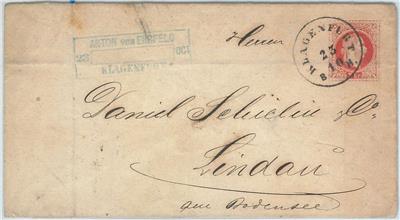 ANTON von EHRFELD
23 OCT
KLAGENFURT
Herren
KLAGENFURT
23
10
Daniel Schielin & Co.
Lindau
am Bodensee